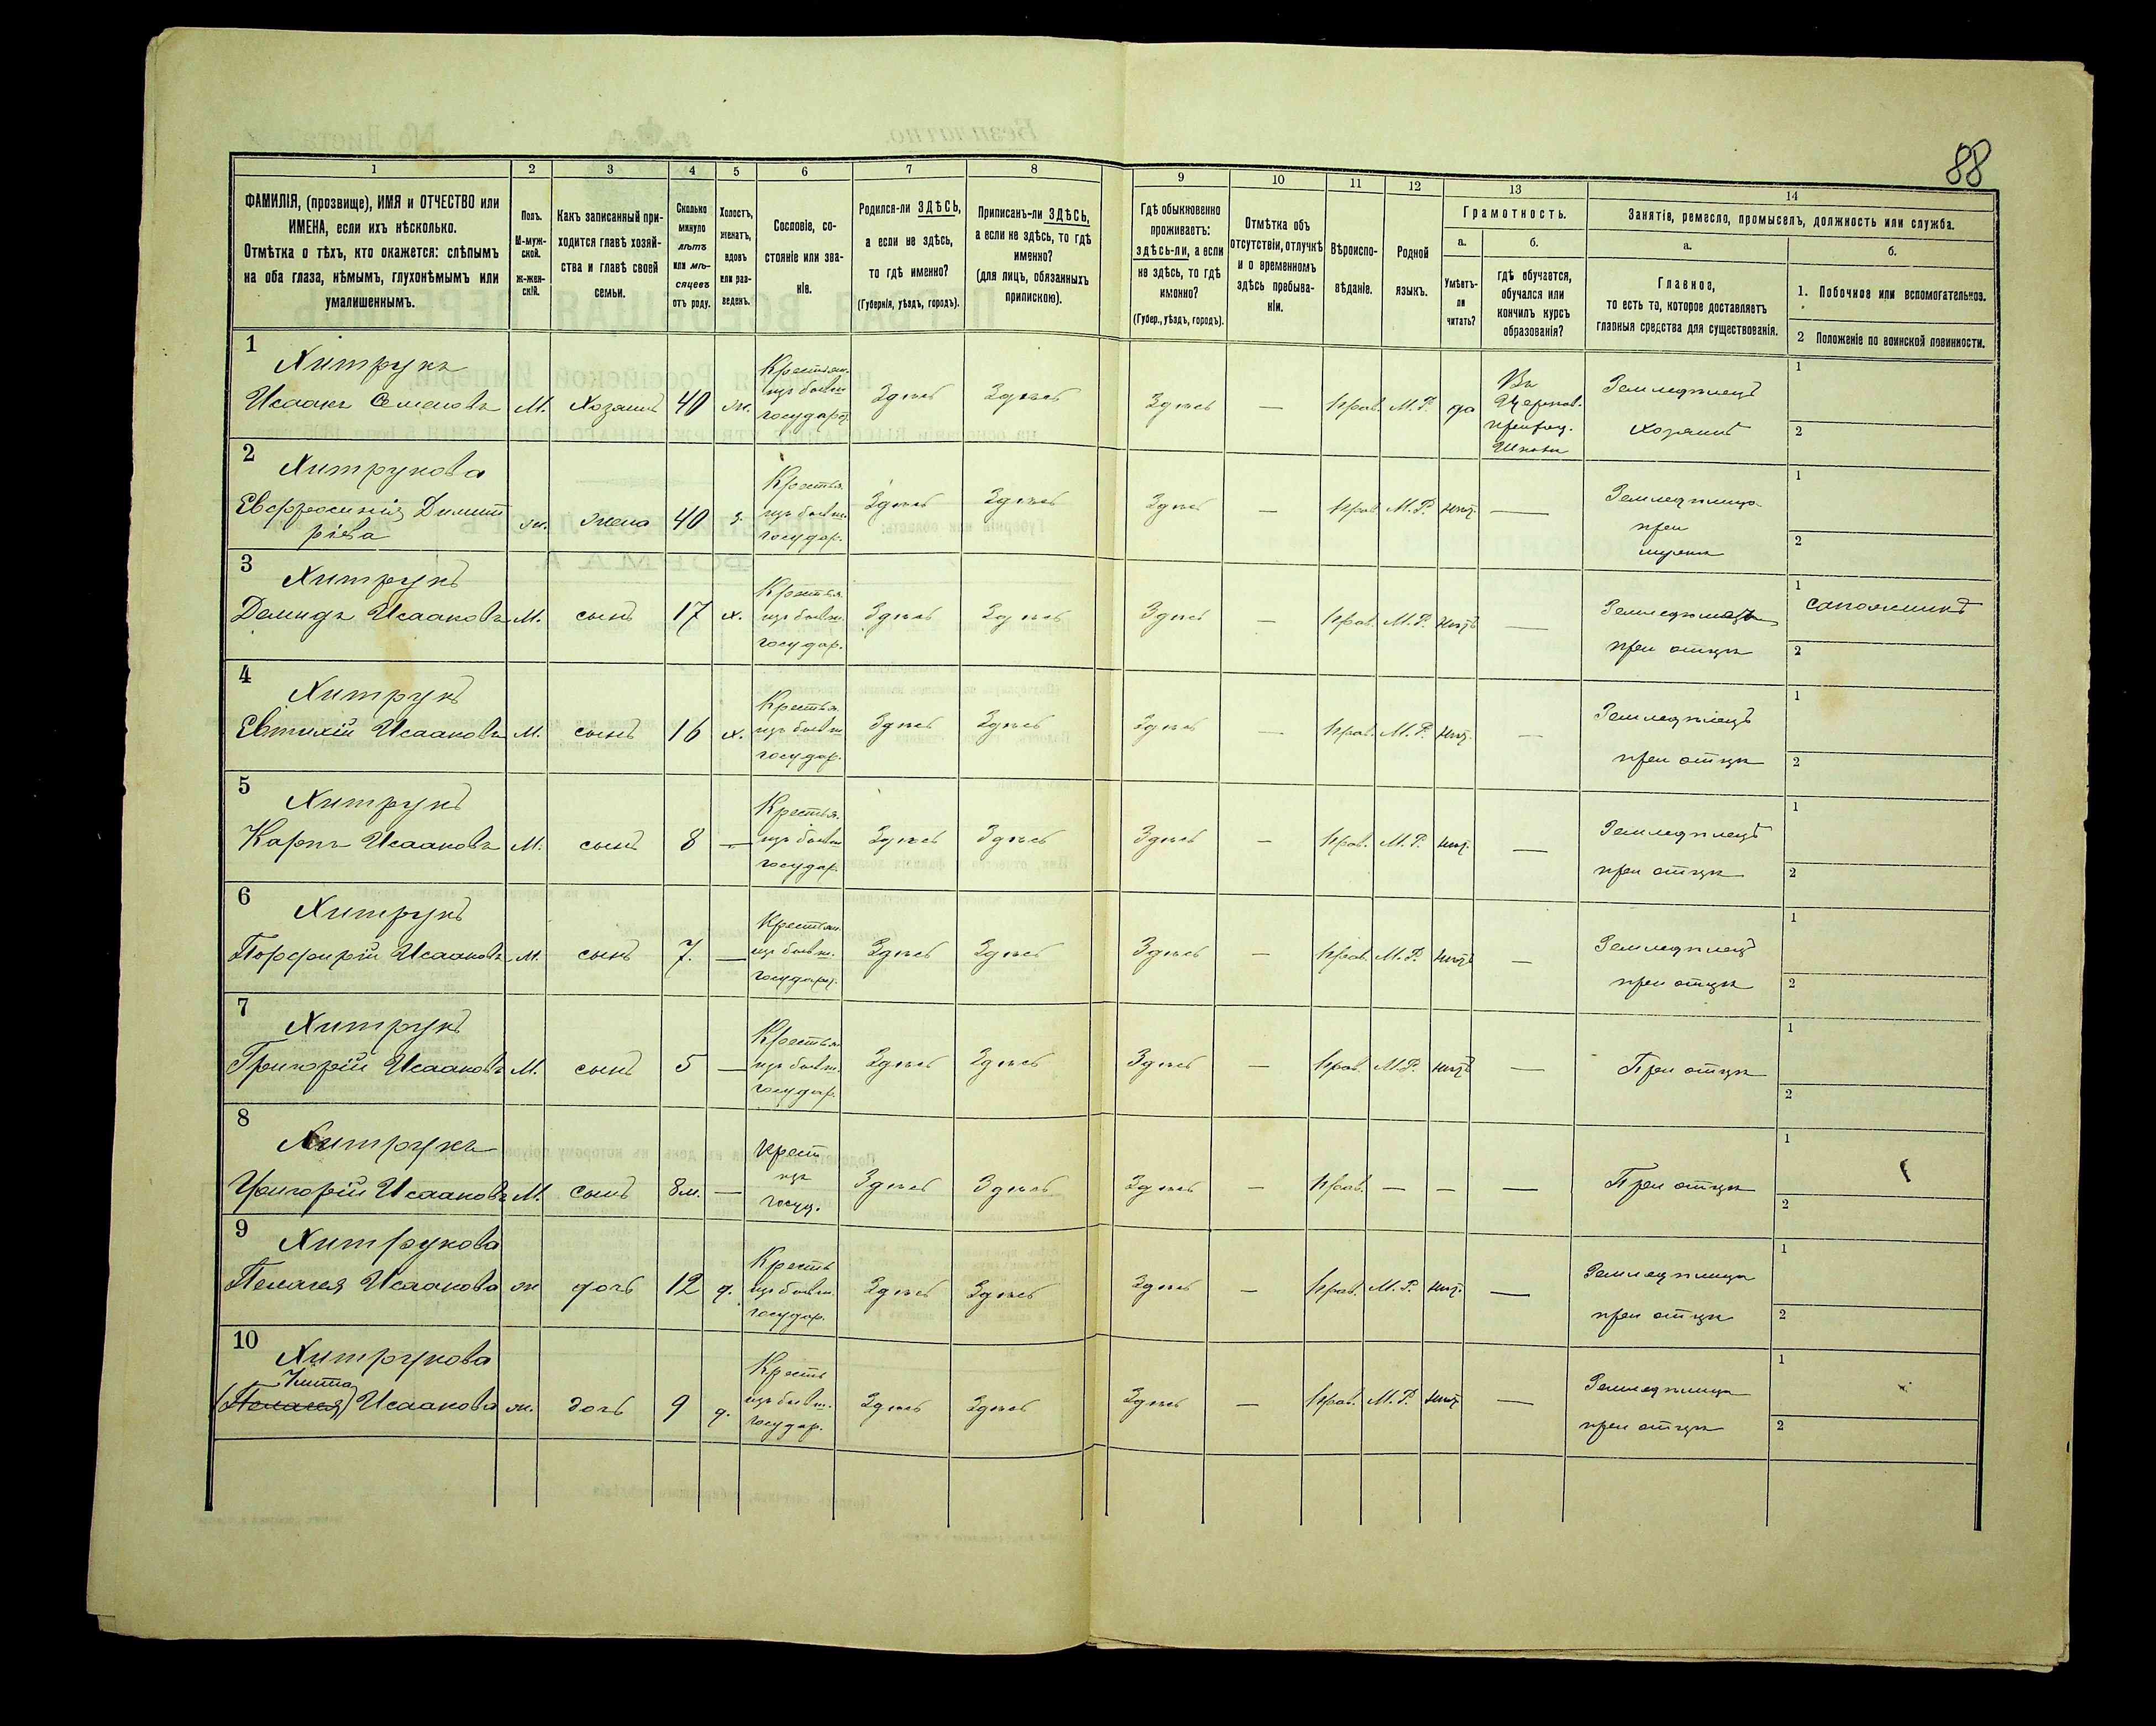 88
1 2 3 4 5 6 7 8 9 10 11 12 13 14
ФАМИЛІЯ, (прозвище), ИМЯ и ОТЧЕСТВО или
ИМЕНА, если ихъ нѣсколько.
Отмѣтка о тѣхъ, кто окажется: слѣпымъ
на оба глаза, нѣмымъ, глухонѣмымъ или
умалишеннымъ.
Полъ.
М-муж-
ской.
ж-жен-
скій.
Какъ записанный при-
ходится главѣ хозяй-
ства и главѣ своей
семьи.
Сколько
минуло
лѣтъ
или мѣ-
сяцевъ
отъ роду.
Холостъ,
женатъ,
вдовъ
или раз-
веденъ.
Сословіе, со-
стояніе или зва-
ніе.
Родился-ли ЗДѢСЬ,
а если не здѣсь,
то гдѣ именно?
(Губернія, уѣздъ, городъ).
Приписанъ-ли ЗДѢСЬ,
а если не здѣсь, то гдѣ
именно?
(для лицъ, обязанныхъ
припискою).
Гдѣ обыкновенно
проживаетъ:
здѣсь-ли, а если
не здѣсь, то гдѣ
именно?
(Губер., уѣздъ, городъ).
Отмѣтка объ
отсутствіи, отлучкѣ
и о временномъ
здѣсь пребыва-
ніи.
Вѣроиспо-
вѣданіе.
Родной
языкъ.
Грамотность.
а.
Умѣетъ-
ли
читать?
б.
гдѣ обучается,
обучался или
кончилъ курсъ
образованія?
Занятіе, ремесло, промыселъ, должность или служба.
а.
Главное,
то есть то, которое доставляетъ
главныя средства для существованія.
б.
1. Побочное или вспомогательное.
2 Положеніе по воинской повинности.
1
Хитрукъ
Исаакъ Семеновъ М. Хозяинъ 40 ж. Крестьян. изъ бывш. государ. Здѣсь Здѣсь Здѣсь — Прав. М.Р. да Въ Церков. приход. Школѣ Земледѣлецъ хозяинъ
1
2
2
Хитрукова
Евфросинія Димит
ріева ж. жена 40 з. Крестья. изъ бывш. государ. Здѣсь Здѣсь Здѣсь — Прав. М.Р. нѣт. — Земледѣлица при мужѣ
1
2
3
Хитрукъ
Демидъ Исааковъ М. сынъ 17 х. Крестья. изъ бывш. государ. Здѣсь Здѣсь Здѣсь — Прав. М.Р. нѣтъ — Земледѣлецъ при отцѣ
1 сапожникъ
2
4
Хитрукъ
Евтихій Исааковъ М. сынъ 16 х. Крестья. изъ бывш. государ. Здѣсь Здѣсь Здѣсь — Прав. М.Р. нѣт. — Земледѣлецъ при отцѣ
1
2
5
Хитрукъ
Карпъ Исааковъ М. сынъ 8 — Крестья. изъ бывш. государ. Здѣсь Здѣсь Здѣсь — Прав. М.Р. нѣт. — Земледѣлецъ при отцѣ
1
2
6
Хитрукъ
Порфирій Исааковъ М. сынъ 7. — Крестьян. изъ бывш. государ. Здѣсь Здѣсь Здѣсь — Прав. М.Р. нѣтъ — Земледѣлецъ при отцѣ
1
2
7
Хитрукъ
Григорій Исааковъ М. сынъ 5 — Крестья. изъ бывш. государ. Здѣсь Здѣсь Здѣсь — Прав. М.Р. нѣтъ — При отцѣ
1
2
8
Хитрукъ
Григорій Исааковъ М. сынъ 8м. — Крест изъ госуд. Здѣсь Здѣсь Здѣсь — Прав. — — — При отцѣ
1
2
9
Хитрукова
Пелагея Исаакова ж дочь 12 д. Кресть изъ бывш. государ. Здѣсь Здѣсь Здѣсь — Прав. М.Р. нѣт. — Земледѣлица при отцѣ
1
2
10
Хитрукова
(Пелагея) Исаакова ж. дочь 9 д. Кресть изъ бывш. государ. Здѣсь Здѣсь Здѣсь — Прав. М.Р. нѣт. — Земледѣлица при отцѣ
1
2